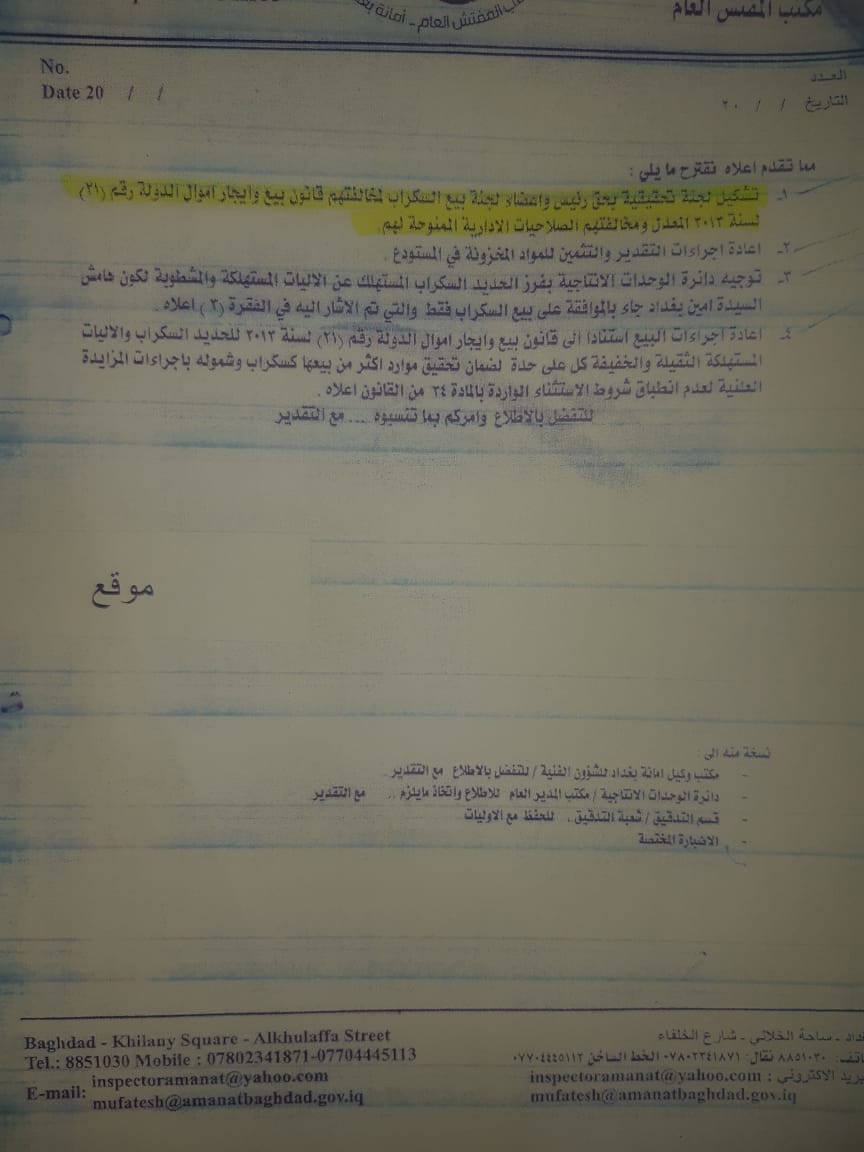 مكتب المفتش العام
المفتش العام - أمانة
No.
العدد
Date 20 / /
التاريخ / / ٢٠
مما تقدم اعلاه نقترح ما يلي :
١- تشكيل لجنة تحقيقية بحق رئيس واعضاء لجنة بيع السكراب لمخالفتهم قانون بيع وايجار اموال الدولة رقم (٢١)
لسنة ٢٠١٣ المعدل ومخالفتهم الصلاحيات الادارية الممنوحة لهم.
٢- اعادة اجراءات التقدير والتثمين للمواد المخزونة في المستودع .
٣- توجيه دائرة الوحدات الانتاجية بفرز الحديد السكراب المستهلك عن الاليات المستهلكة والمشطوبة لكون هامش
السيدة امين بغداد جاء بالموافقة على بيع السكراب فقط والتي تم الاشار اليه في الفقرة (٢) اعلاه .
٤- اعادة اجراءات البيع استنادا الى قانون بيع وايجار اموال الدولة رقم (٢١) لسنة ٢٠١٣ للحديد السكراب والاليات
المستهلكة الثقيلة والخفيفة كل على حدة لضمان تحقيق موارد اكثر من بيعها كسكراب وشموله باجراءات المزايدة
العلنية لعدم انطباق شروط الاستثناء الواردة بالمادة ٣٤ من القانون اعلاه .
للتفضل بالاطلاع وامركم بما تنسبوه .... مع التقدير
موقع
نسخة منه الى :
- مكتب وكيل امانة بغداد للشؤون الفنية / للتفضل بالاطلاع مع التقدير.
- دائرة الوحدات الانتاجية / مكتب المدير العام للاطلاع واتخاذ مايلزم .. مع التقدير
- قسم التدقيق / شعبة التدقيق . للحفظ مع الاوليات
- الاضبارة المختصة
Baghdad - Khilany Square - Alkhulaffa Street
Tel.: 8851030 Mobile : 07802341871-07704445113
E-mail: inspectoramanat@yahoo.com
mufatesh@amanatbaghdad.gov.iq
ـداد - ساحة الخلاني - شارع الخلفاء
ـاتف: ٨٨٥١٠٣٠ نقال: ٠٧٨٠٢٣٤١٨٧١ الخط الساخن ٠٧٧٠٤٤٤٥١١٣
ـريد الالكتروني : inspectoramanat@yahoo.com
mufatesh@amanatbaghdad.gov.iq